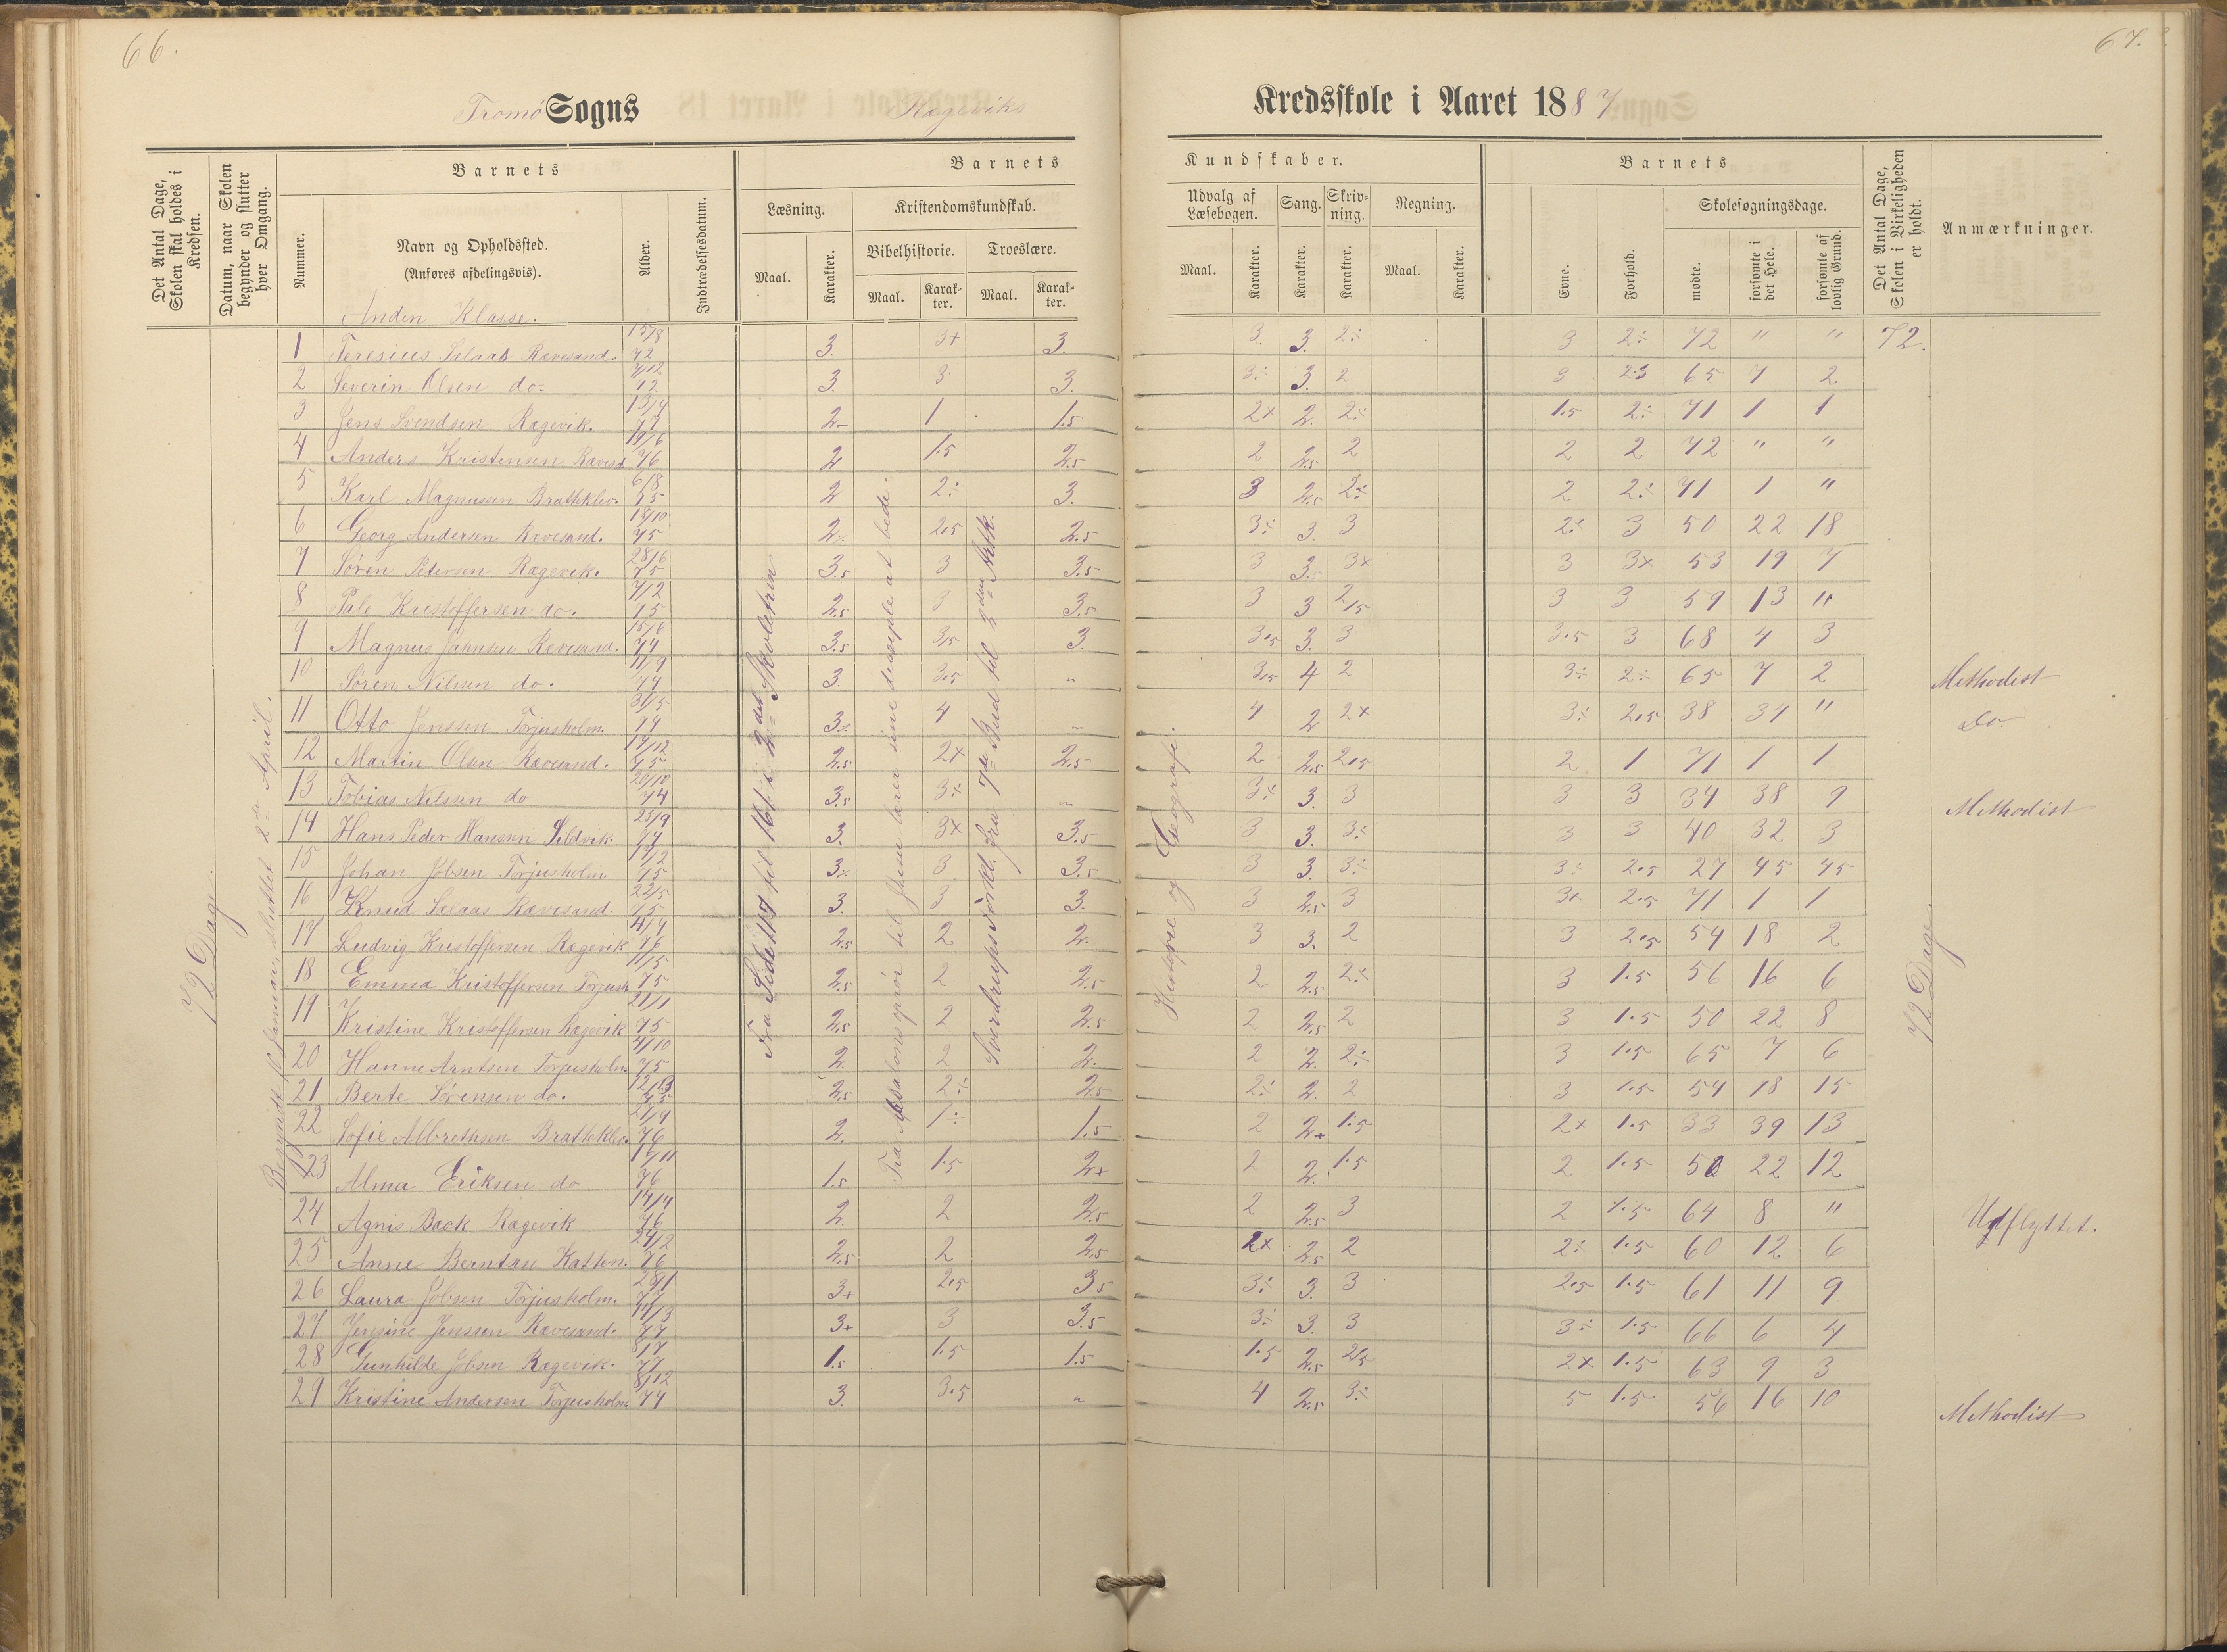 66.
67.
Tromø Sogns Rægeviks Kredsskole i Aaret 1887
Det Antal Dage, Skolen skal holdes i Kredsen.
Datum, naar Skolen begynder og slutter hver Omgang.
Nummer.
Barnets
Navn og Opholdssted.
(Anføres afdelingsvis).
Anden Klasse.
Alder.
Indtrædelsesdatum.
Barnets Kundskaber.
Læsning.
Maal. Karakter.
Kristendomskundskab.
Bibelhistorie. Troeslære.
Maal. Karakter. Maal. Karakter.
Udvalg af Læsebogen. Sang. Skrivning. Regning.
Maal. Karakter. Karakter. Karakter. Maal. Karakter.
Barnets
Evne. Forhold.
Skolesøgningsdage.
mødte. forsømte i det Hele. forsømte af lovlig Grund.
Det Antal Dage, Skolen i Virkeligheden er holdt.
Anmærkninger.
72 Dage.
Begyndt Januar, sluttet 2 April.
Fra Side 117 til 161 i 2det Skoletrin
Fra Absalons oprør til Jesus lærer sine disciple at bede.
Sverdrups Forkl. fra 7de Bud til 2den Artk.
Historie og Geografi.
72 Dage.
1 Teresius Salaas Rævesand. 15/8 72 3. 3+ 3. 3. 3. 2÷ 3 2÷ 72 " " 72.
2 Severin Olsen do. 72 3. 3 3. 3÷ 3. 2 3 2.3 65 7 2
3 Jens Svendsen Rægevik. 13/4 77 2- 1 1.5 2x 2. 2÷ 1.5 2÷ 71 1 1
4 Anders Kristensen Rævesd. 76 2 1.5 2.5 2 2.5 2 2 2 72 " "
5 Karl Magnussen Bratteklev. 6/8 75 2 2÷ 3. 3 2.5 2÷ 2 2÷ 71 1 "
6 Georg Andersen Rævesand. 18/10 75 2÷ 2.5 2.5 3÷ 3. 3 2÷ 3 50 22 18
7 Søren Petersen Rægevik. 28/6 75 3.5 3 3.5 3 3. 3x 3 3x 53 19 7
8 Pale Kristoffersen do. 7/2 75 2.5 3 3.5 3 3 2.5 3 3 59 13 "
9 Magnus Jahnsen Rævesand. 15/6 74 3.5 3.5 3. 3.5 3. 3 3.5 3 68 4 3
10 Søren Nilssen do. 11/9 74 3. 3.5 " 3.5 4 2 3÷ 2÷ 65 7 2 Methodist
11 Otto Jenssen Torjusholm. 31/5 74 3÷ 4 " 4 2 2x 3÷ 2.5 38 34 " Do
12 Martin Olsen Rævesand. 17/12 75 2.5 2x 2.5 2 2.5 2.5 2 1 71 1 1
13 Tobias Nilssen do 20/10 74 3.5 3÷ " 3÷ 3. 3 3 3 34 38 9 Methodist
14 Hans Peder Hansen Sildvik. 25/9 74 3. 3x 3.5 3 3. 3÷ 3 3 40 32 3
15 Johan Jobsen Torjusholm. 75 3÷ 3 3.5 3 3. 3÷ 3÷ 2.5 27 45 45
16 Knud Salaas Rævesand. 22/5 75 3. 3 3. 3 2.5 3 3x 2.5 71 1 1
17 Ludvig Kristoffersen Rægevik 4/4 76 2.5 2 2. 3 3. 2 3 2.5 54 18 2
18 Emma Kristoffersen Torjush. 75 2.5 2 2.5 2 2.5 2÷ 3 1.5 56 16 6
19 Kristine Kristoffersen Rægevik 21/1 75 2.5 2 2.5 2 2.5 2 3 1.5 50 22 8
20 Hanne Arntsen Torjusholm. 4/10 75 2. 2 2. 2 2. 2÷ 3 1.5 65 7 6
21 Berte Sørensen do. 75 2.5 2÷ 2.5 2÷ 2. 2 3 1.5 54 18 15
22 Sofie Albrethsen Brattekle. 21/9 76 2. 1÷ 1.5 2 2+ 1.5 2x 1.5 33 39 13
23 Alma Eriksen do 76 1.5 1.5 2x 2 2. 1.5 2 1.5 50 22 12
24 Agnis Back Rægevik 14/4 76 2. 2 2.5 2 2.5 3 2 1.5 64 8 " Udflyttet.
25 Anne Berntsn Katten. 24/2 76 2.5 2 2.5 2x 2.5 2 2÷ 1.5 60 12 6
26 Laura Jobsen Torjusholm. 28/1 77 3+ 2.5 3.5 3÷ 3. 3 2.5 1.5 61 11 9
27 Jensine Jenssen Rævesand. 14/3 77 3+ 3 3.5 3÷ 3. 3 3÷ 1.5 66 6 4
28 Gunhilde Jobsen Rægevik. 8/7 77 1.5 1.5 1.5 1.5 2.5 2.5 2x 1.5 63 9 3
29 Kristine Andersen Torjusholm. 8/12 74 3. 3.5 " 4 2.5 3÷ 5 1.5 56 16 10 Methodist